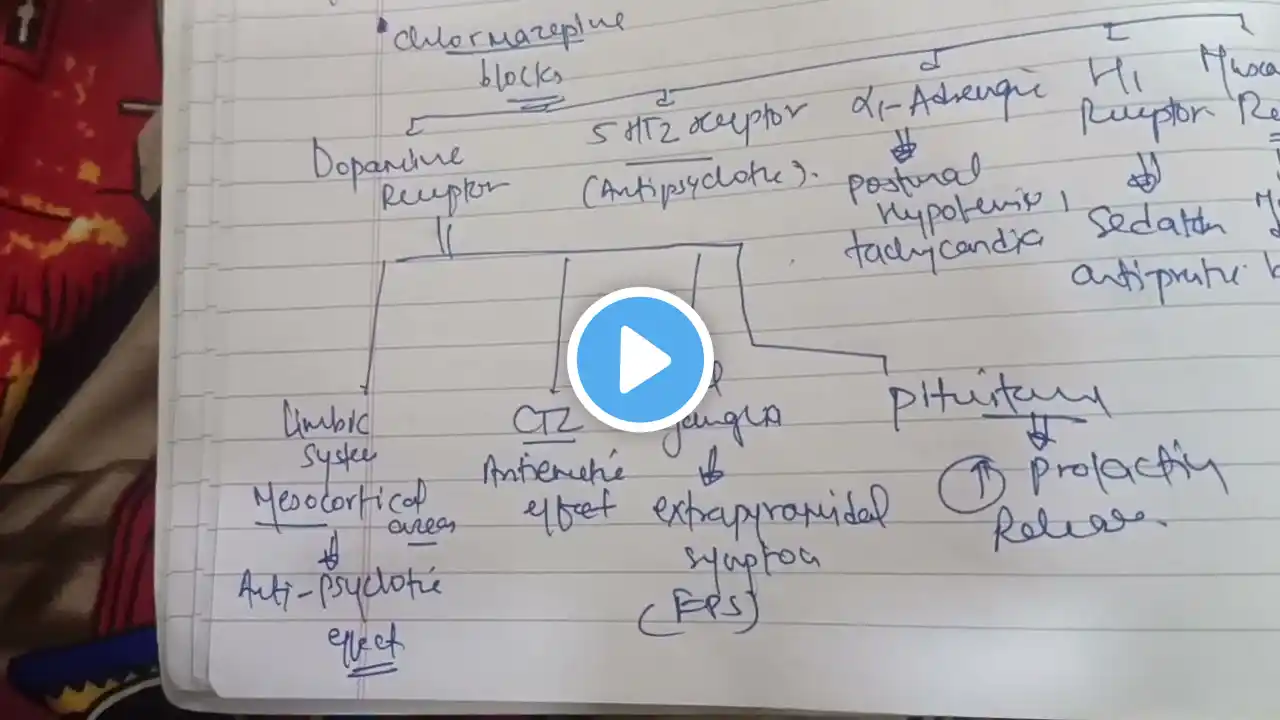 chlormazepine
blocks
Dopamine
Receptor
5HT2 receptor
(Antipsyclotic).
α1-Adrengic
postural
Hypotensio,
tachycardia
H1
Receptor
Sedatn
anti-prutic
Musca
Re
Limbic
System
Mesocortical
areas
Anti-psyclotic
effect
CTZ
Antiemetic
effect
ganglia
extrapyramidal
symptom
(EPS)
pituitary
↑ prolactin
Release.